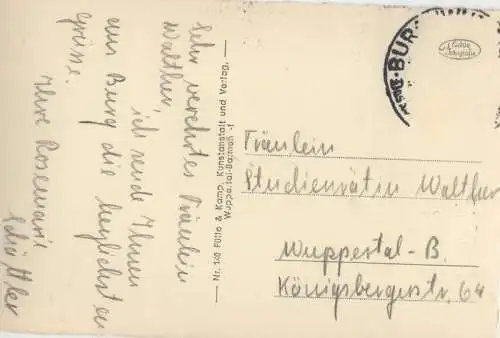 Sehr verehrtes Fräulein
Walther,
ich sende Ihnen
aus Burg die herzlichsten
Grüsse.
Ihre Rosemarie
Schüttler
Nr. 140 Fülle & Kamp, Kunstanstalt und Verlag.
Wuppertal-Barmen
BUR
Fräulein
Studienrätin Walther
Wuppertal-B.
Königsbergerstr. 64